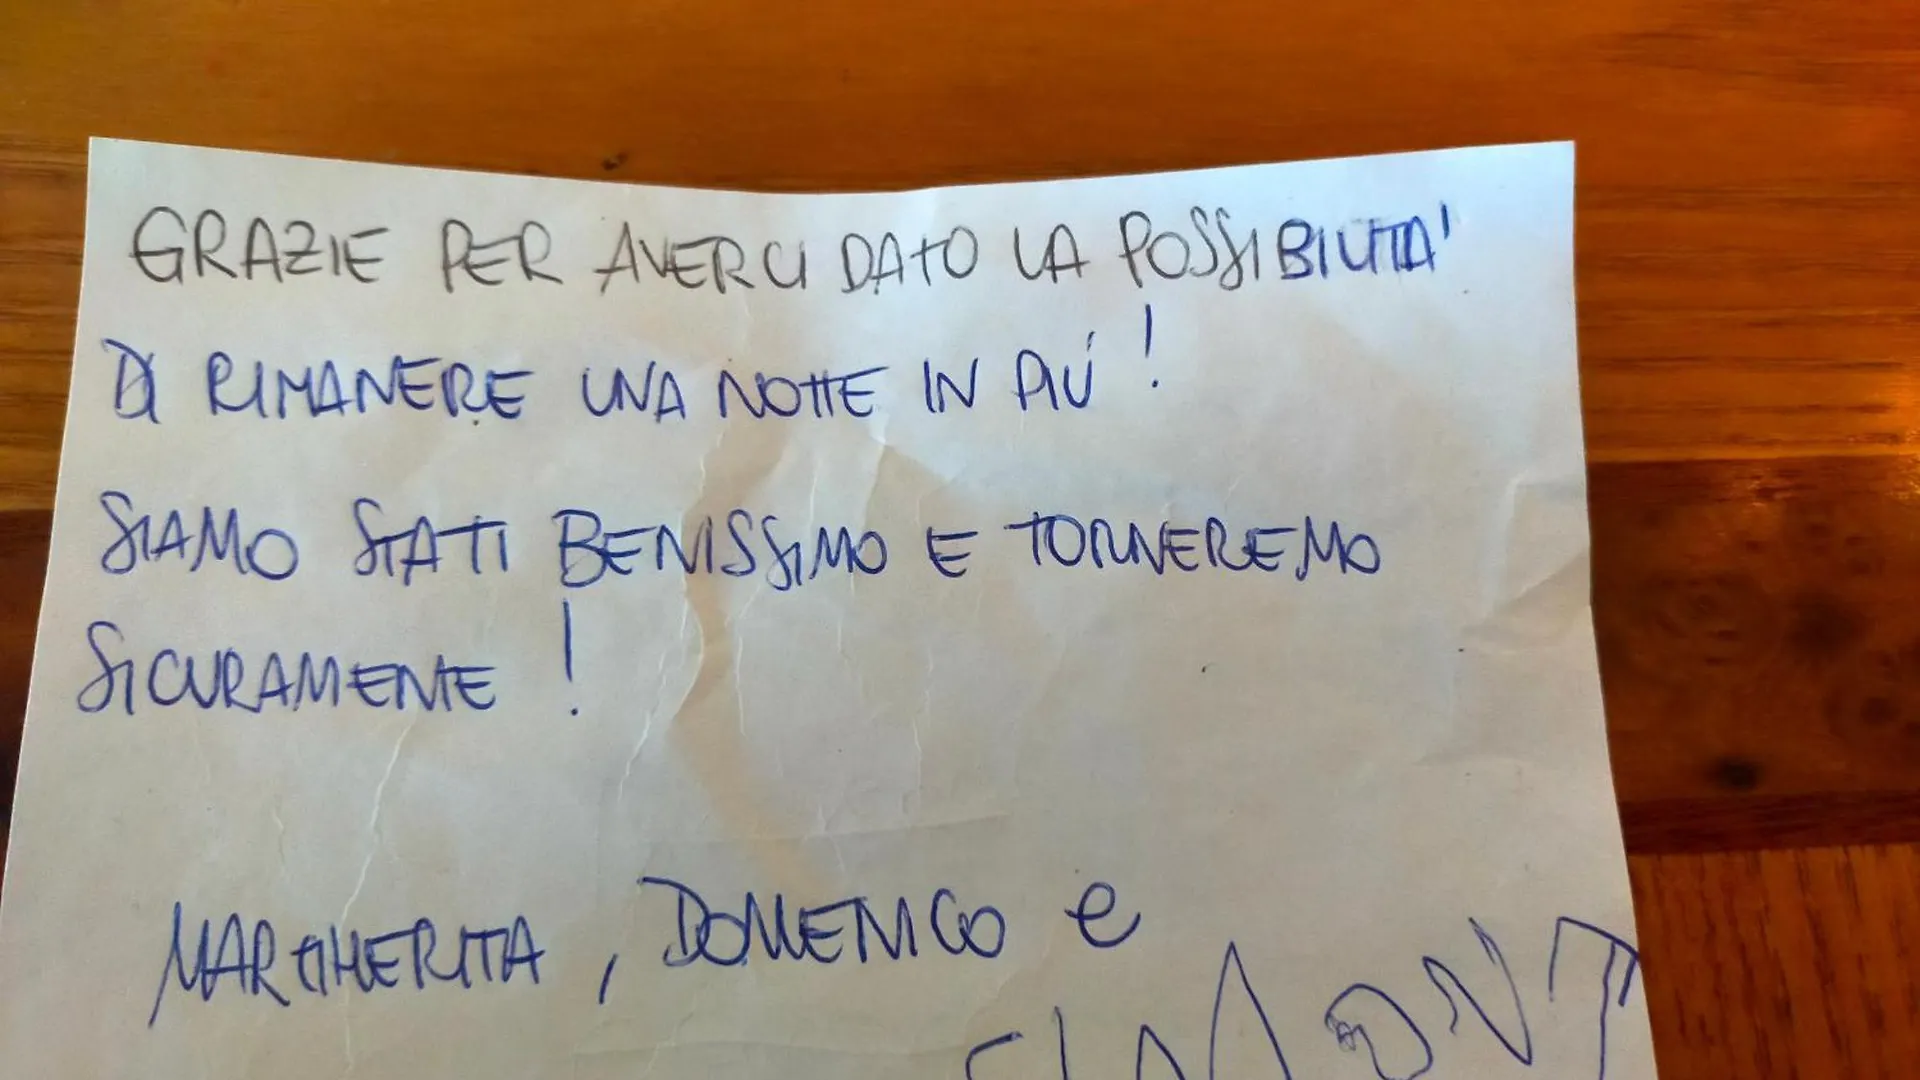 GRAZIE PER AVERCI DATO LA POSSIBILITA'
DI RIMANERE UNA NOTTE IN PIÚ!
SIAMO STATI BENISSIMO E TORNEREMO
SICURAMENTE!
MARGHERITA, DOMENICO e